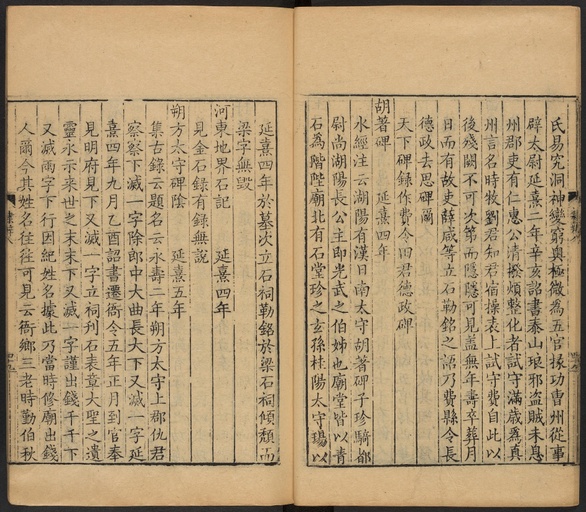 氏易究洞神變窮奧極微為五官掾功曹州從事
辟太尉延熹二年辛亥詔書泰山琅邪盜賊未息
州郡吏有仁惠公清撥煩整化者試守滿歲為真
州言名時牧劉君知君宿操表上試守費自此以
後殘闕不可次第而隱隱可見蓋無年壽卒葬月
日而有故吏薛咸等立石勒銘之語乃費縣令長
德政去思碑爾
天下碑錄作費令田君德政碑
胡著碑 延熹四年
水經注云湖陽有漢日南太守胡著碑子珍騎都
尉尚湖陽長公主即光武之伯姊也廟堂皆以青
石為階陛廟北有石堂珍之玄孫桂陽太守瑒以
延熹四年於墓次立石祠勒銘於梁石祠傾頹而
梁字無毀
河東地界石記 延熹四年
見金石錄有錄無說
朔方太守碑陰 延熹五年
集古錄云題名云永壽二年朔方太守上郡仇君
察察下滅一字除郎中大曲長大下又滅一字延
熹四年九月乙酉詔書遷衙令五年正月到官奉
見明府見下又滅一字立祠刊石表章大聖之遺
靈永示来世之末末下又滅一字謹出錢千千下
又滅兩字下行因紀姓名據此乃當時修廟出錢
人爾今其姓名往往可見云衙鄉三老時勤伯秋